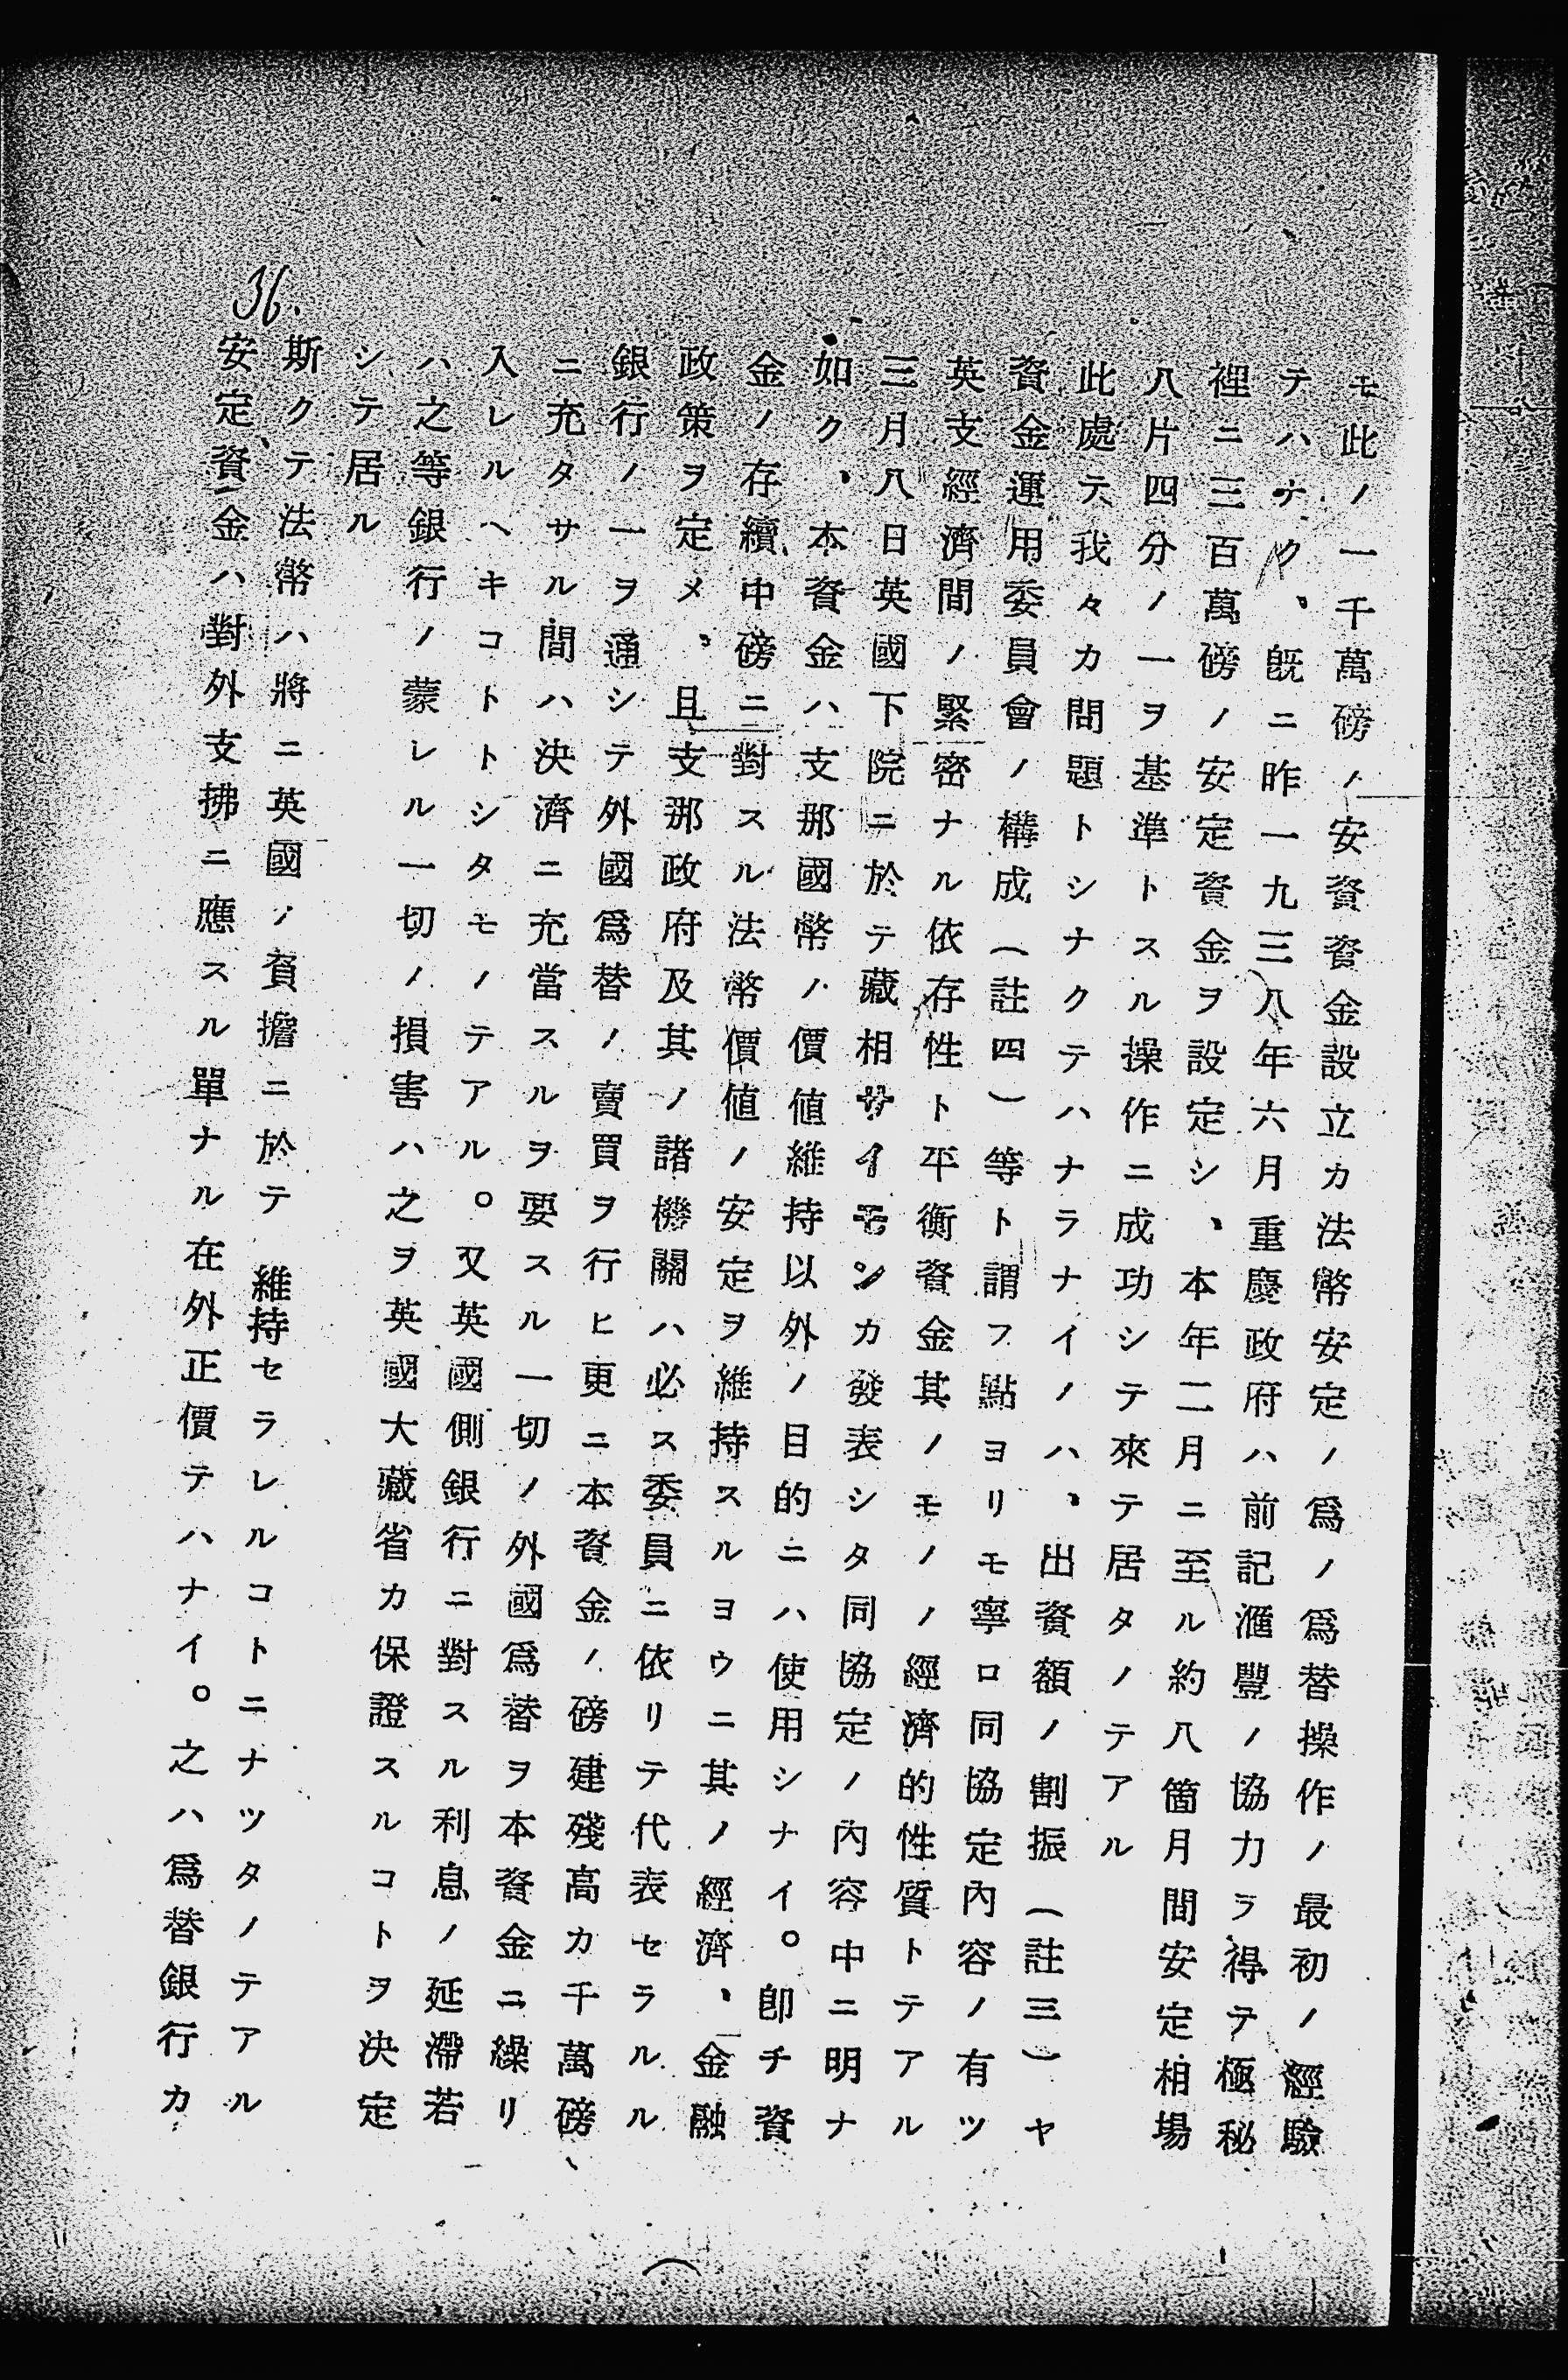 モ此ノ一千萬磅ノ安資資金設立カ法幣安定ノ爲ノ爲替操作ノ最初ノ經驗
テハナク、既ニ昨一九三八年六月重慶政府ハ前記滙豐ノ協力ラ得テ極秘
裡ニ三百萬磅ノ安定資金ヲ設定シ、本年二月ニ至ル約八箇月間安定相場
八片四分ノ一ヲ基準トスル操作ニ成功シテ來テ居タノテアル
此處テ我々カ問題トシナクテハナラナイノハ、出資額ノ割振(註三)ヤ
資金運用委員會ノ構成(註四)等ト謂フ點ヨリモ寧ロ同協定內容ノ有ツ
英支經濟間ノ緊密ナル依存性ト平衡資金其ノモノノ經濟的性質トテアル
三月八日英國下院ニ於テ藏相サイモンカ發表シタ同協定ノ內容中ニ明ナ
如ク、本資金ハ支那國幣ノ價値維持以外ノ目的ニハ使用シナイ。卽チ資
金ノ存續中磅ニ對スル法幣價値ノ安定ヲ維持スルヨウニ其ノ經濟、金融
政策ヲ定メ、且支那政府及其ノ諸機關ハ必ス委員ニ依リテ代表セラルル
銀行ノ一ヲ通シテ外國爲替ノ賣買ヲ行ヒ更ニ本資金ノ磅建殘高カ千萬磅
ニ充タサル間ハ決濟ニ充當スルヲ要スル一切ノ外國爲替ヲ本資金ニ繰リ
入レルヘキコトトシタモノテアル。又英國側銀行ニ對スル利息ノ延滯若
ハ之等銀行ノ蒙レル一切ノ損害ハ之ヲ英國大藏省カ保證スルコトヲ決定
シテ居ル
斯クテ法幣ハ將ニ英國ノ負擔ニ於テ維持セラレルコトニナツタノテアル
36.
安定資金ハ對外支拂ニ應スル單ナル在外正價テハナイ。之ハ爲替銀行カ